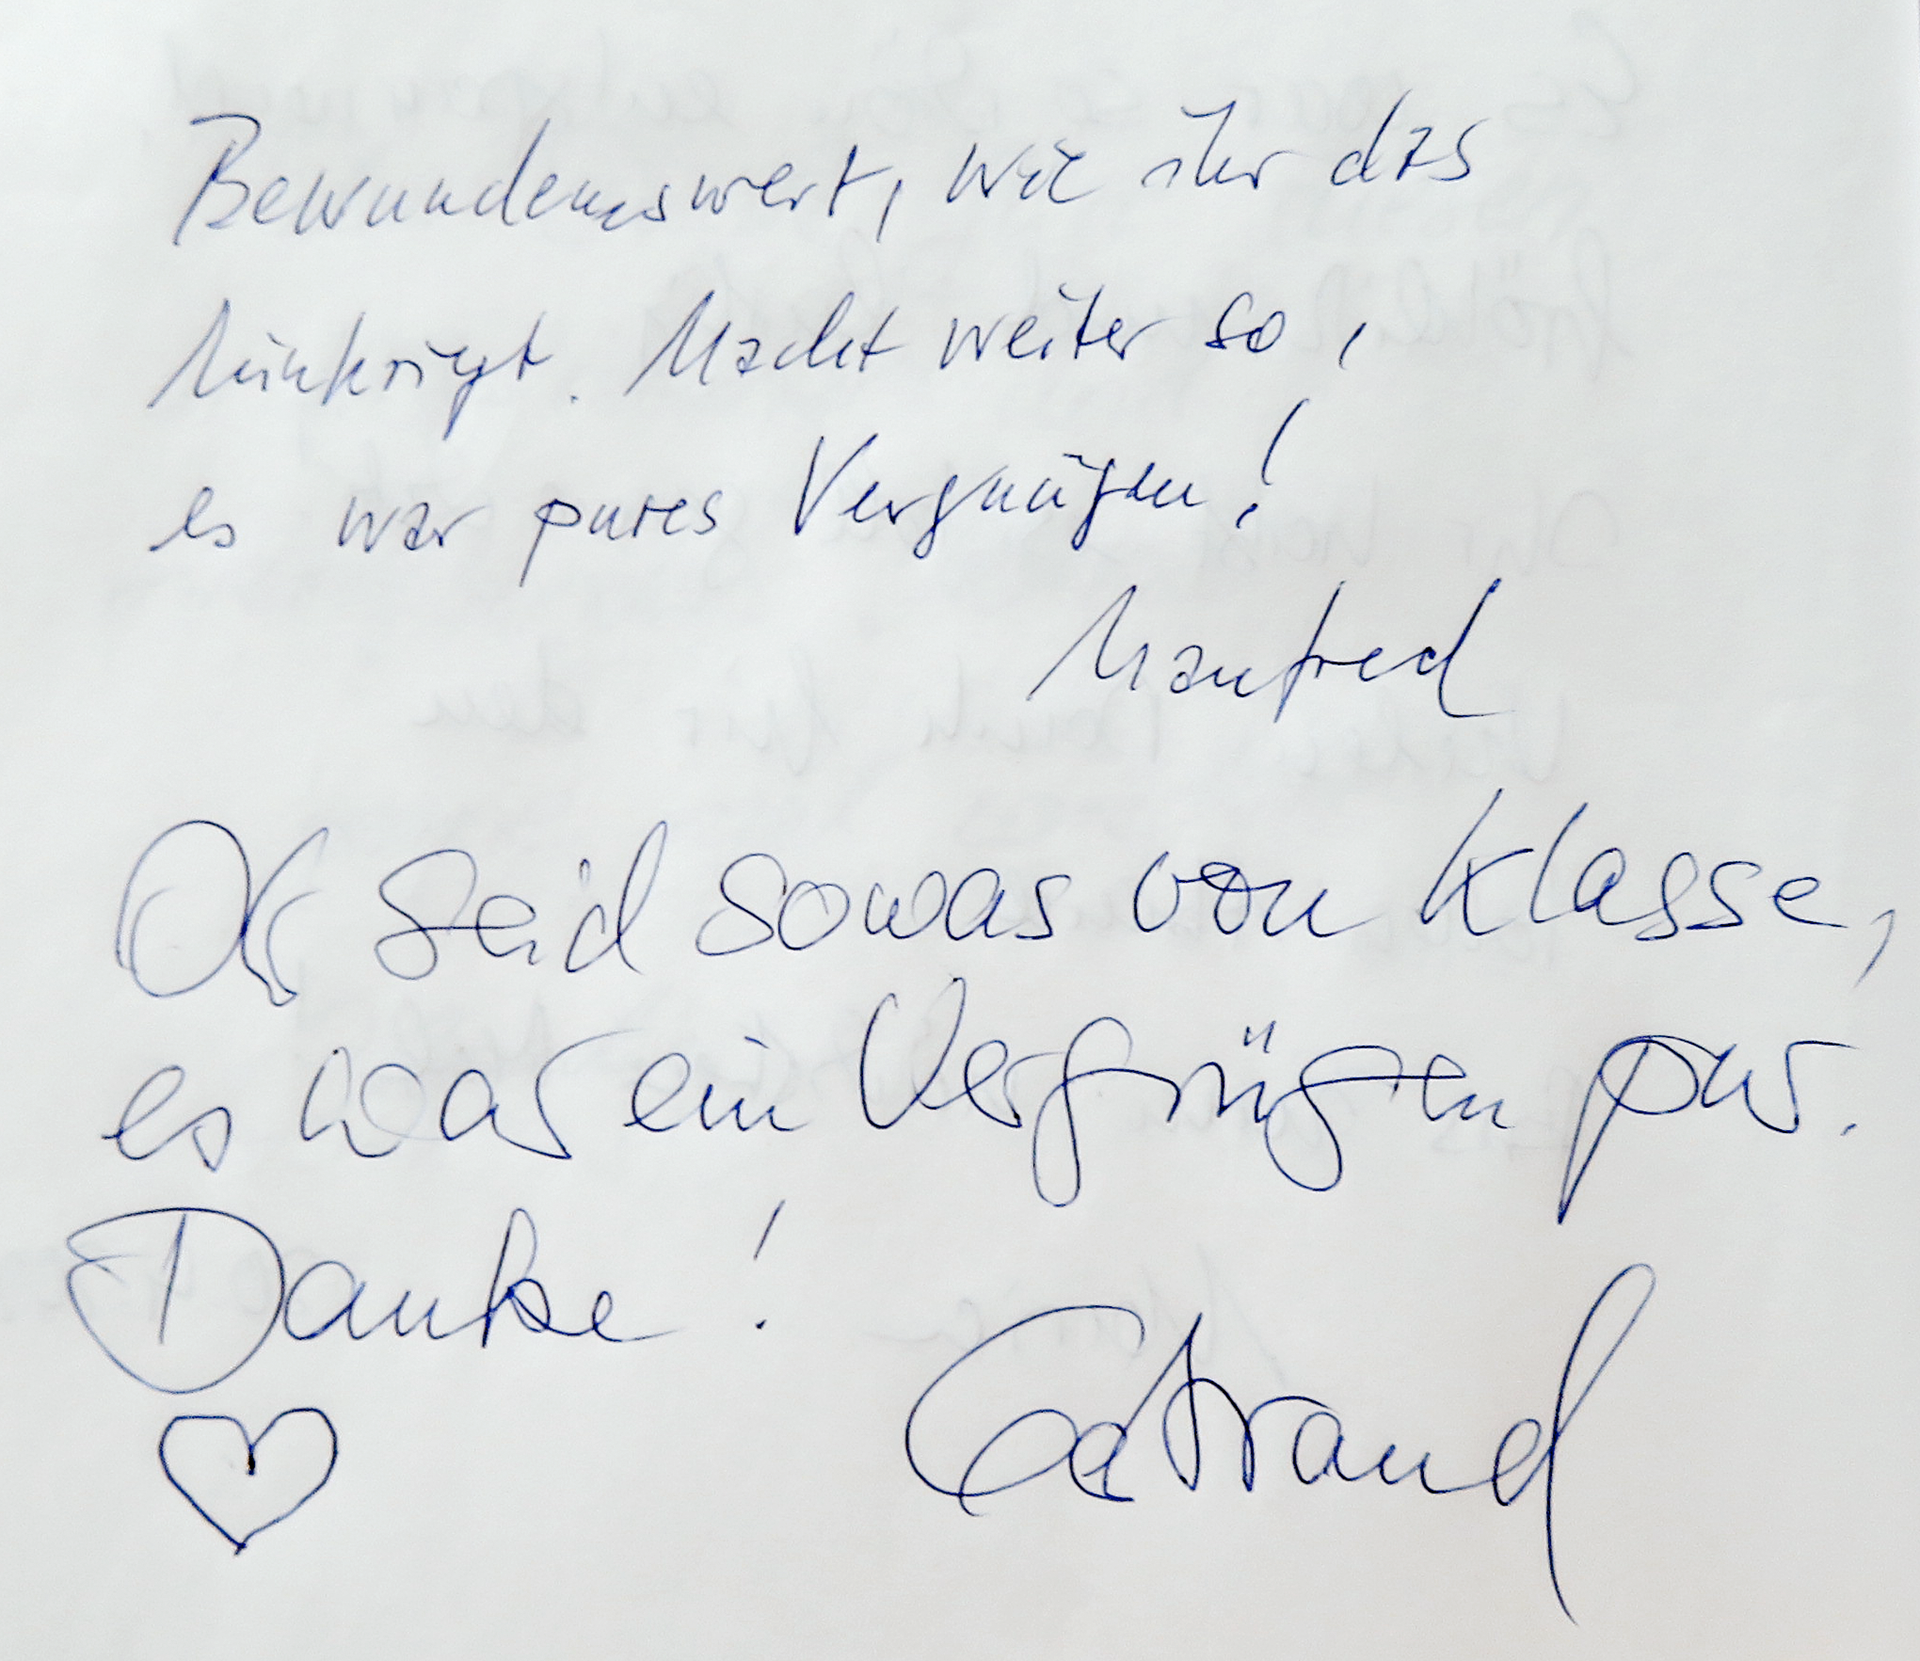 Bewundernswert, wie ihr das
hinkriegt. Macht weiter so,
es war pures Vergnügen!
Manfred
Ihr seid sowas von klasse,
es war ein Vergnügen pur.
Danke!